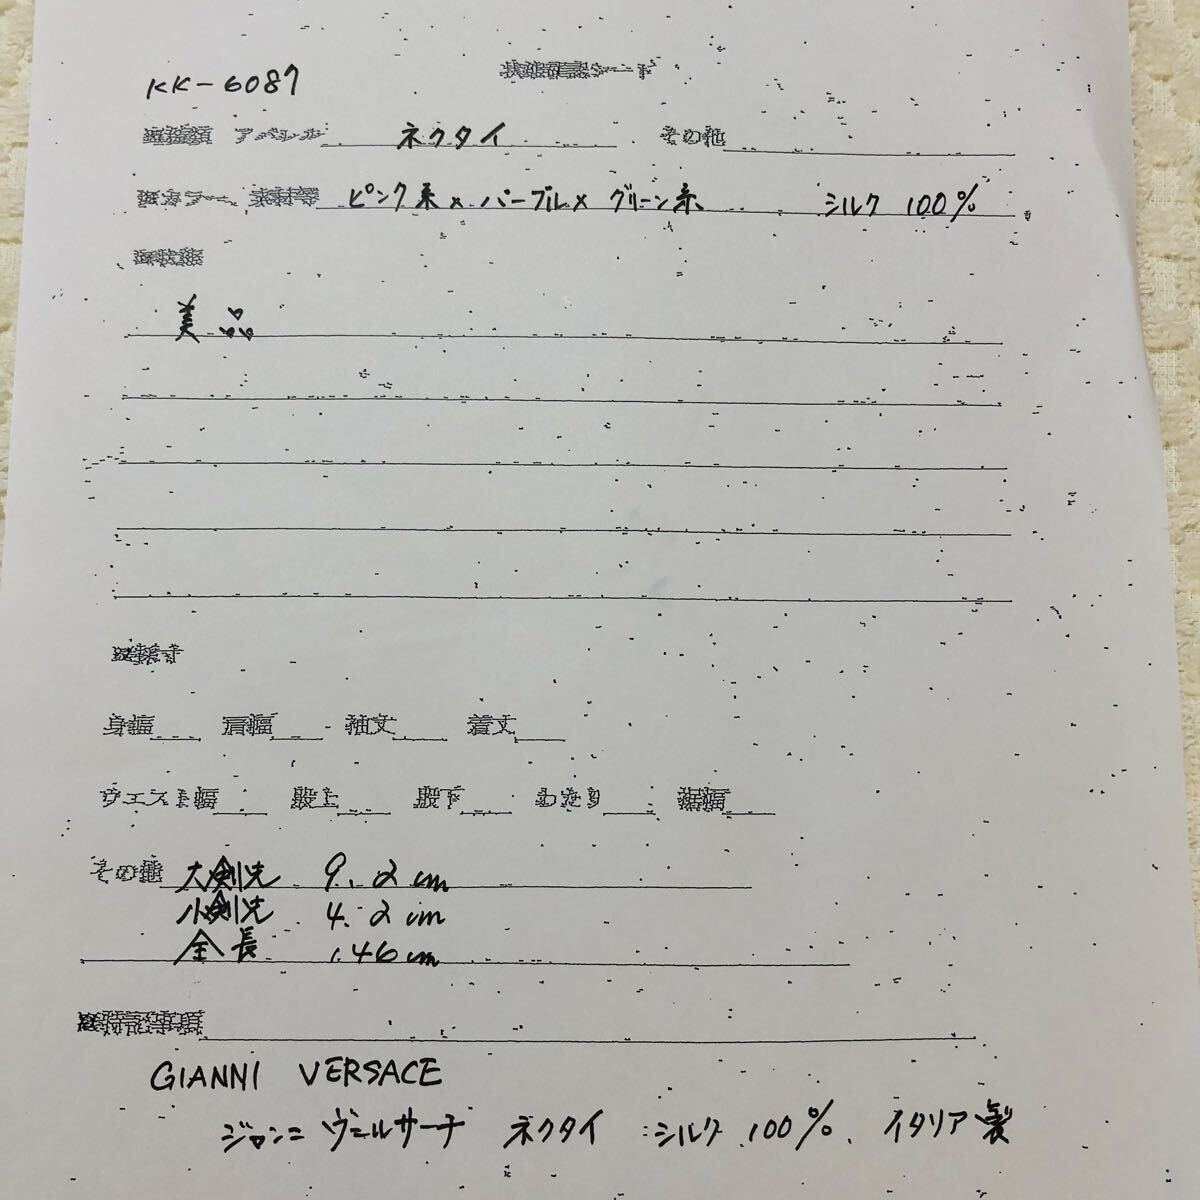 KK-6087
状態確認シート
アパレル ネクタイ その他
カラー、素材等 ピンク系×パープル×グリーン系 シルク 100%
※状態
美品
身幅 肩幅 袖丈 着丈
ウエスト幅 股上 股下 わたり 裾幅
その他 大剣先 9.2cm
小剣先 4.2cm
全長 146cm
※特記事項
GIANNI VERSACE
ジャンニ ヴェルサーチ ネクタイ シルク 100%、イタリア製